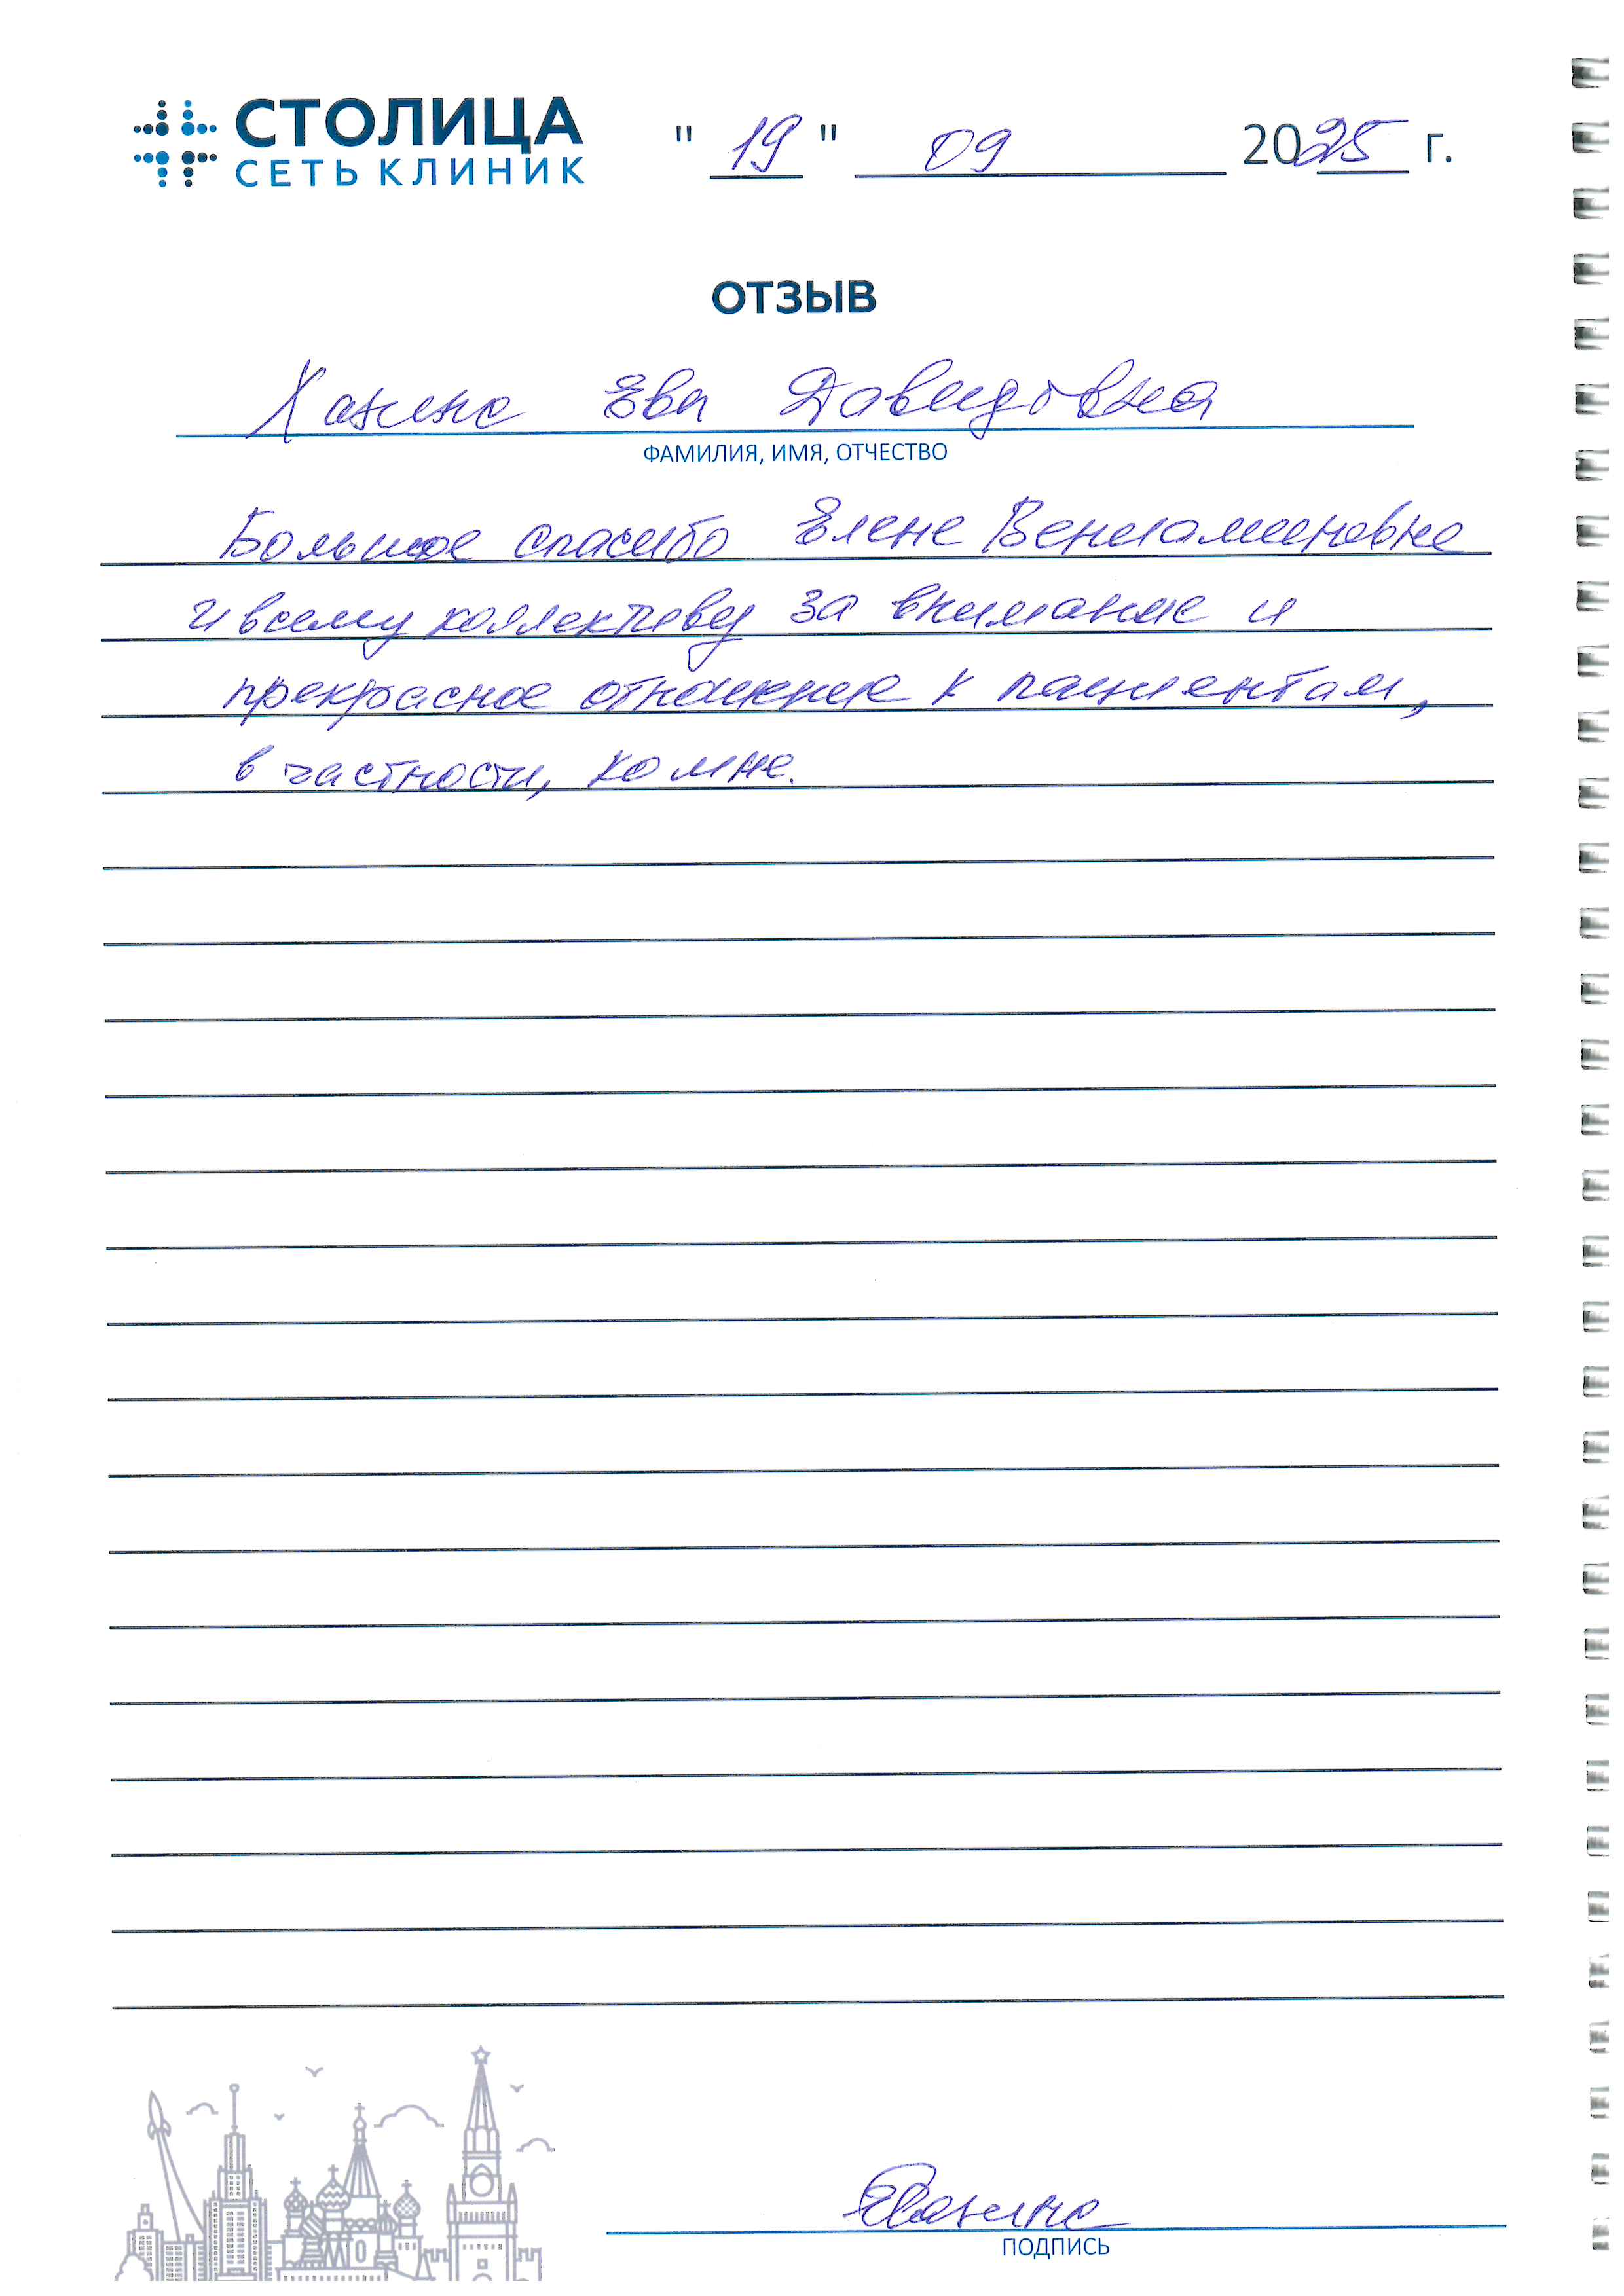 СТОЛИЦА
СЕТЬ КЛИНИК
" 19 " 09 2025 г.
ОТЗЫВ
Ханина Ева Давидовна
ФАМИЛИЯ, ИМЯ, ОТЧЕСТВО
Большое спасибо Елене Вениаминовне
и всему коллективу за внимание и
прекрасное отношение к пациентам,
в частности, ко мне.
ПОДПИСЬ